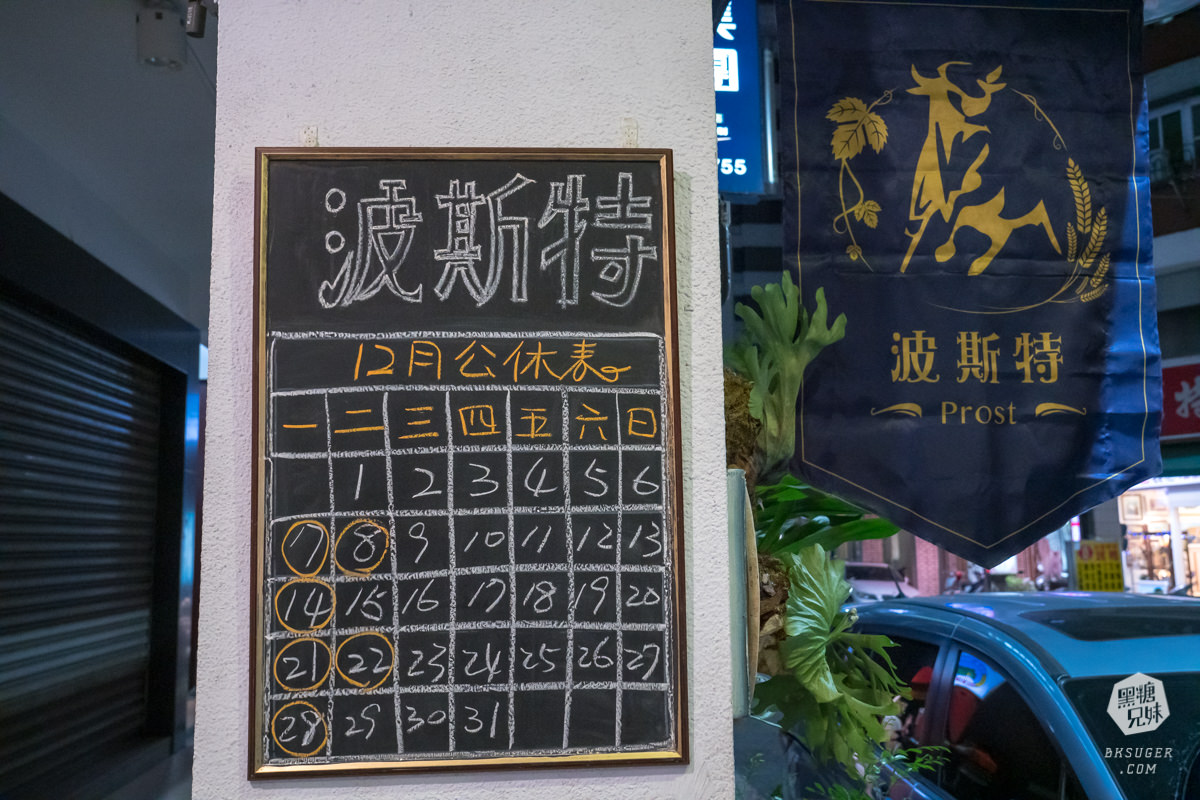 波斯特
12月公休表
一 二 三 四 五 六 日
1 2 3 4 5 6
7 8 9 10 11 12 13
14 15 16 17 18 19 20
21 22 23 24 25 26 27
28 29 30 31
755
波斯特
Prost
黑糖
兄妹
BKSUGER
.COM